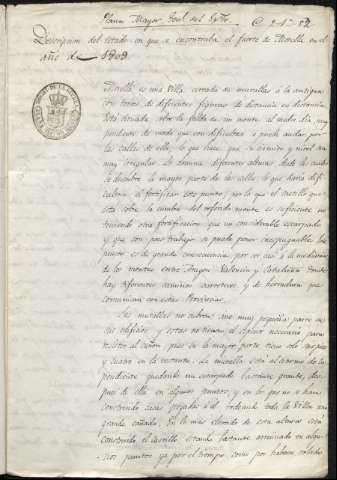 Plana Mayor Gral del Egto
Descripcion del estado en que se encontraba el fuerte de Morella en el
año de 1809
Morella es una Villa cercada de murallas á la antigua
con torres de diferentes figuras de distancia en distancia.
Está situada sobre la falda de un monte al medio dia, muy
pendiente de modo que con dificultad se puede andar por
las calles de ella, lo que hace que su circuito y nivel sea
muy irregular. La dominan diferentes alturas desde las cuales
se descubre la mayor parte de las calles, lo que haria dificil
el fortificar este punto, por lo que el castillo que
está sobre la cumbre del referido monte es suficiente no
teniendo otra fortificacion que un considerable escarpado
y que con poco trabajo se puede poner inexpugnable. Este
punto es de grande consecuencia por ser casi á la mediania
de los montes entre Aragon, Valencia y Cataluña donde
hay diferentes caminos carreteros y de herradura que
comunican con estas Provincias.
Las murallas no cubren sino muy pequeña parte de
sus edificios y estas no tienen el espesor necesario para
resistir al cañon, pues en la mayor parte tiene solo tres pies
y cuatro en lo restante. La muralla está al estremo de la
pendiente quedando un escarpado bastante grande, des-
pues de ella en algunos puntos, y en los que no se han
construido casas pegadas á él rodeando toda la Villa una
grande cañada. En lo mas elevado de esta altura está
construido el castillo, estando bastante arruinado en algu-
nos puntos ya por el tiempo, como por haberse volado